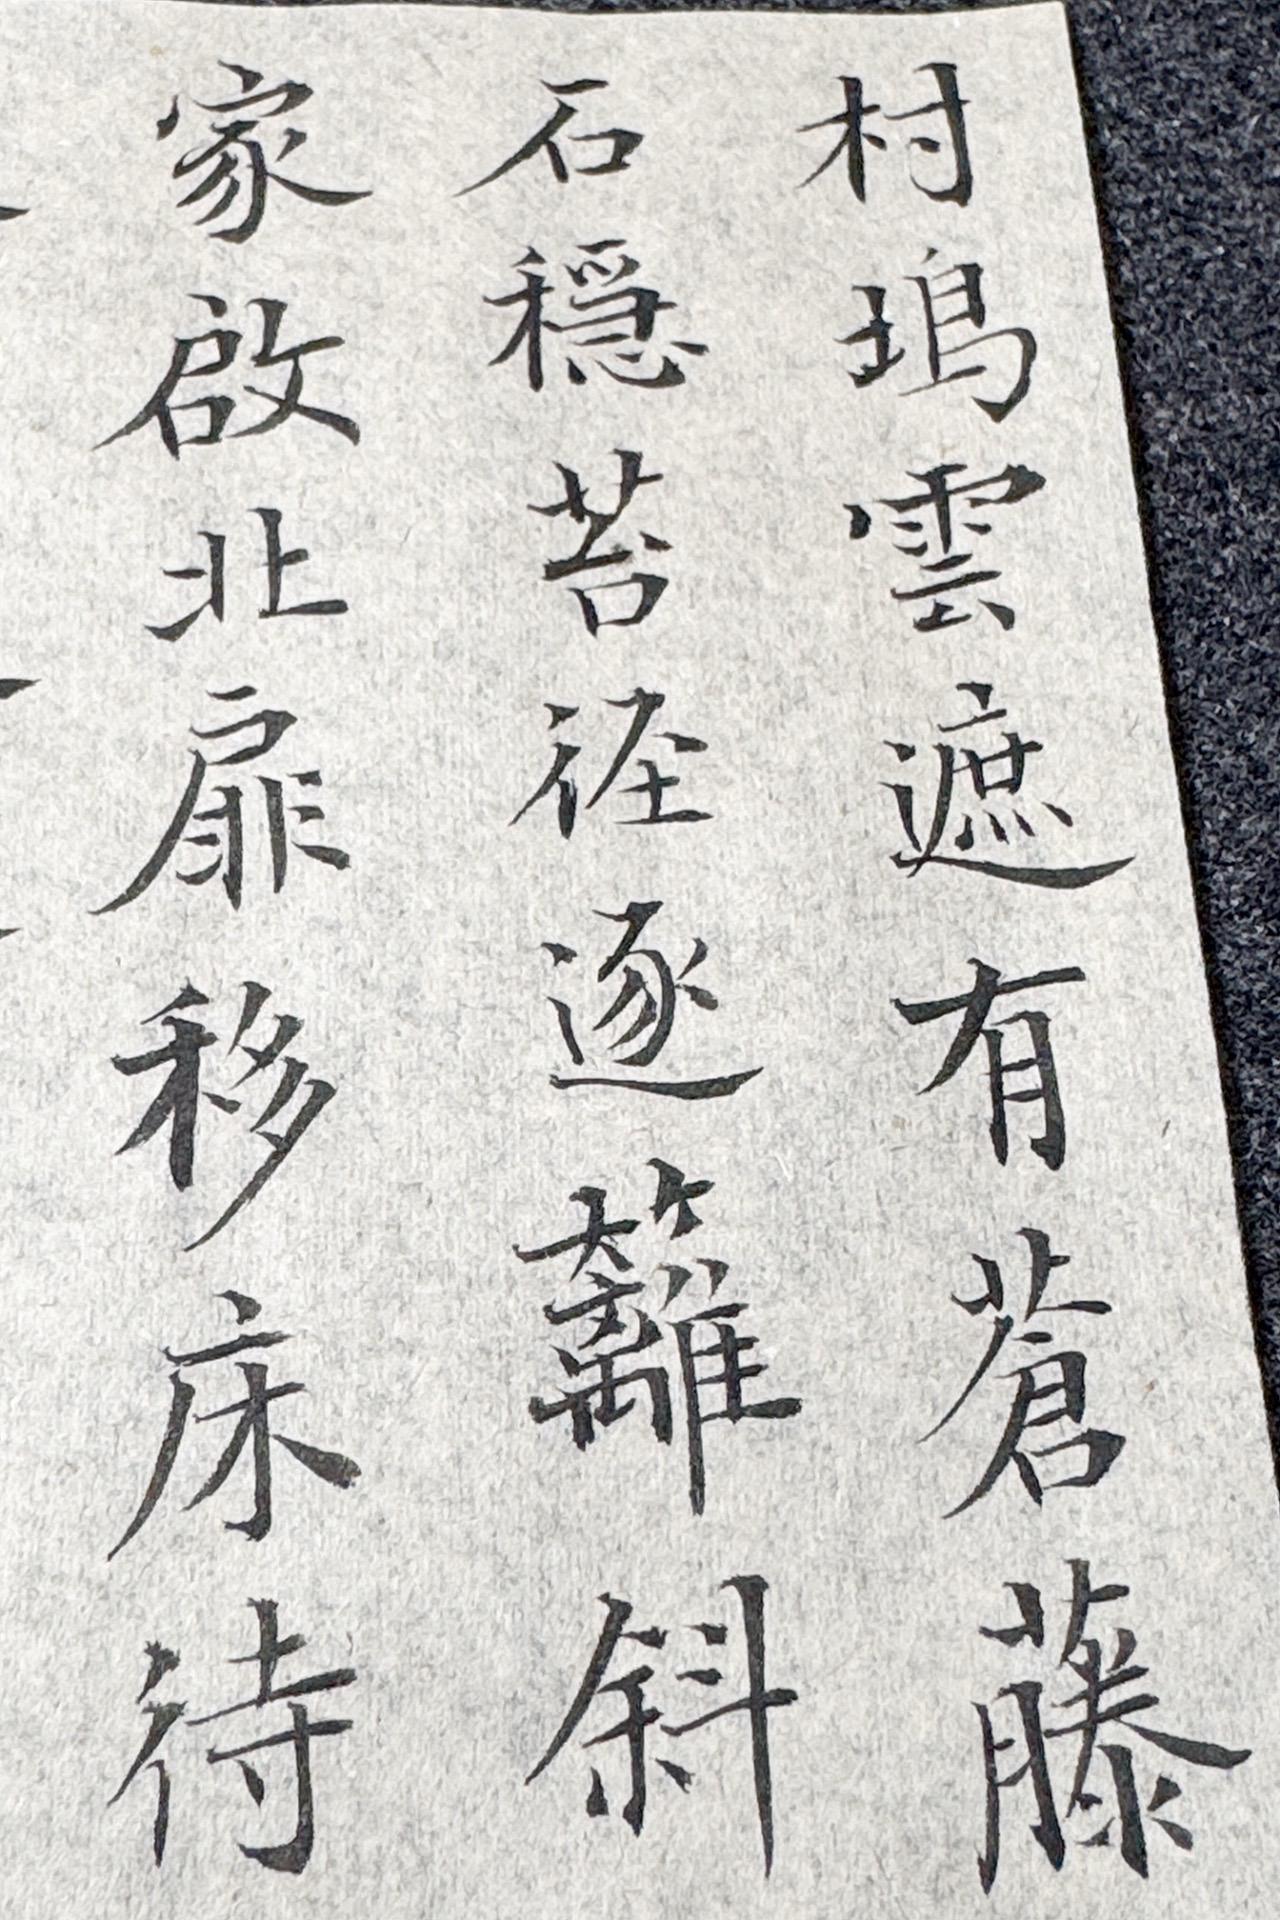 村塢雲遮有蒼藤
石穩苔径逐籬斜
家啟北扉移床待